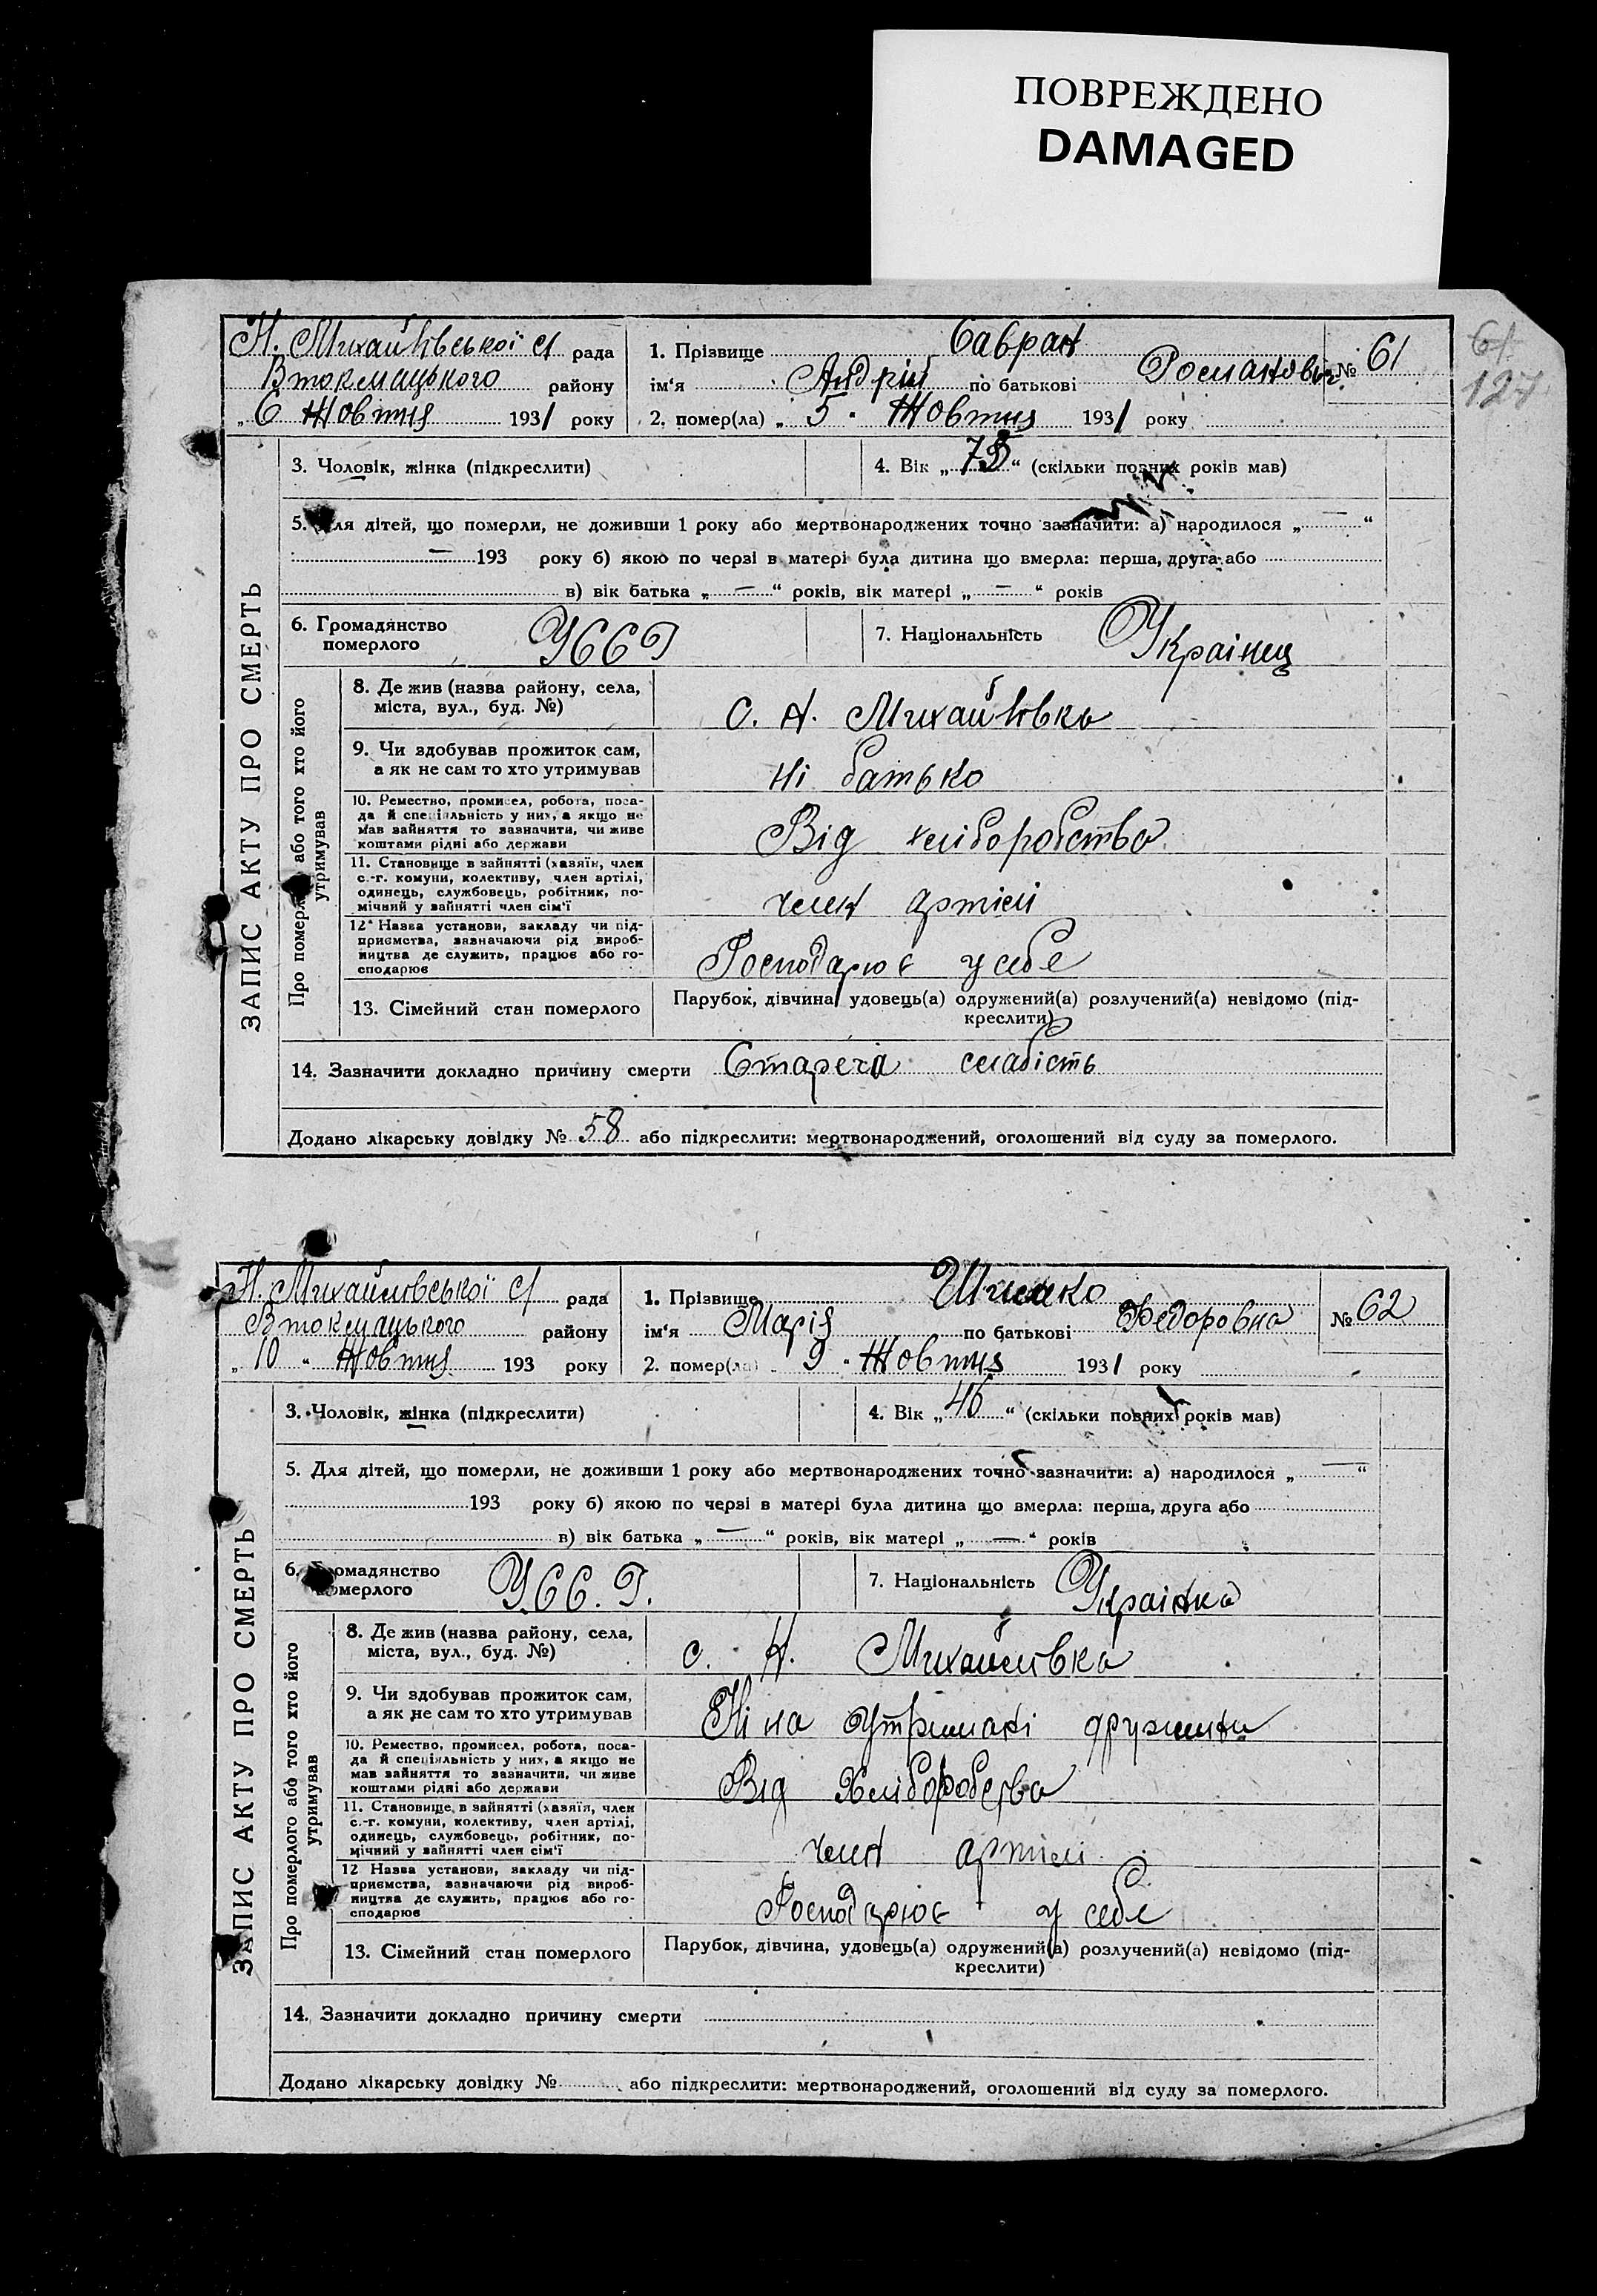 ПОВРЕЖДЕНО
DAMAGED
61
127
Н. Михайлівської с/ рада
Втокмацького району
„ 6 Жовтня 1931 року
1. Прізвище Савран
ім'я Андрій по батькові Романович
№ 61
2. помер(ла) „ 5 " Жовтня 1931 року
ЗАПИС АКТУ ПРО СМЕРТЬ
3. Чоловік, жінка (підкреслити)
4. Вік „ 75 “ (скільки повних років мав)
5. Для дітей, що померли, не доживши 1 року або мертвонароджених точно зазначити: а) народилося „ — “
— 193 року б) якою по черзі в матері була дитина що вмерла: перша, друга або
в) вік батька „ — “ років, вік матері „ — “ років
6. Громадянство
померлого
УССР
7. Національність Украінец
Про померлого або того хто його
утримував
8. Де жив (назва району, села,
міста, вул., буд. №)
с. Н. Михайлівка
9. Чи здобував прожиток сам,
а як не сам то хто утримував
Ні батько
10. Ремество, промисел, робота, поса-
да й спеціяльність у них, а якщо не
мав зайняття то зазначити, чи живе
коштами рідні або держави
Від хліборобства
11. Становище в зайнятті (хазяїн, член
с.-г. комуни, колективу, член артілі,
одинець, службовець, робітник, по-
мічний у зайнятті член сім'ї
член артілі
12 Назва установи, закладу чи під-
приємства, зазначаючи рід вироб-
ництва де служить, працює або го-
сподарює
Господарює у себе
13. Сімейний стан померлого
Парубок, дівчина, удовець(а) одружений(а) розлучений(а) невідомо (під-
креслити)
14. Зазначити докладно причину смерти Стареча слабість
Додано лікарську довідку № 58 або підкреслити: мертвонароджений, оголошений від суду за померлого.
Н. Михайловської с/ рада
Втокмацького району
„ 10 “ Жовтня 193 року
1. Прізвище
ім'я Марія по батькові Федоровна
№ 62
2. помер(ла) „ 9 " Жовтня 1931 року
ЗАПИС АКТУ ПРО СМЕРТЬ
3. Чоловік, жінка (підкреслити)
4. Вік „ 46 “ (скільки повних років мав)
5. Для дітей, що померли, не доживши 1 року або мертвонароджених точно зазначити: а) народилося „ — “
193 року б) якою по черзі в матері була дитина що вмерла: перша, друга або
в) вік батька „ — “ років, вік матері „ — “ років
6. Громадянство
померлого
УСС.Р.
7. Національність Украінка
Про померлого або того хто його
утримував
8. Де жив (назва району, села,
міста, вул., буд. №)
с. Н. Михайлівка
9. Чи здобував прожиток сам,
а як не сам то хто утримував
Ні на утримані дружини
10. Ремество, промисел, робота, поса-
да й спеціяльність у них, а якщо не
мав зайняття то зазначити, чи живе
коштами рідні або держави
Від Хліборобства
11. Становище в зайнятті (хазяїн, член
с.-г. комуни, колективу, член артілі,
одинець, службовець, робітник, по-
мічний у зайнятті член сім'ї
член артілі
12 Назва установи, закладу чи під-
приємства, зазначаючи рід вироб-
ництва де служить, працює або го-
сподарює
Господарює у себе
13. Сімейний стан померлого
Парубок, дівчина, удовець(а) одружений(а) розлучений(а) невідомо (під-
креслити)
14. Зазначити докладно причину смерти
Додано лікарську довідку № або підкреслити: мертвонароджений, оголошений від суду за померлого.